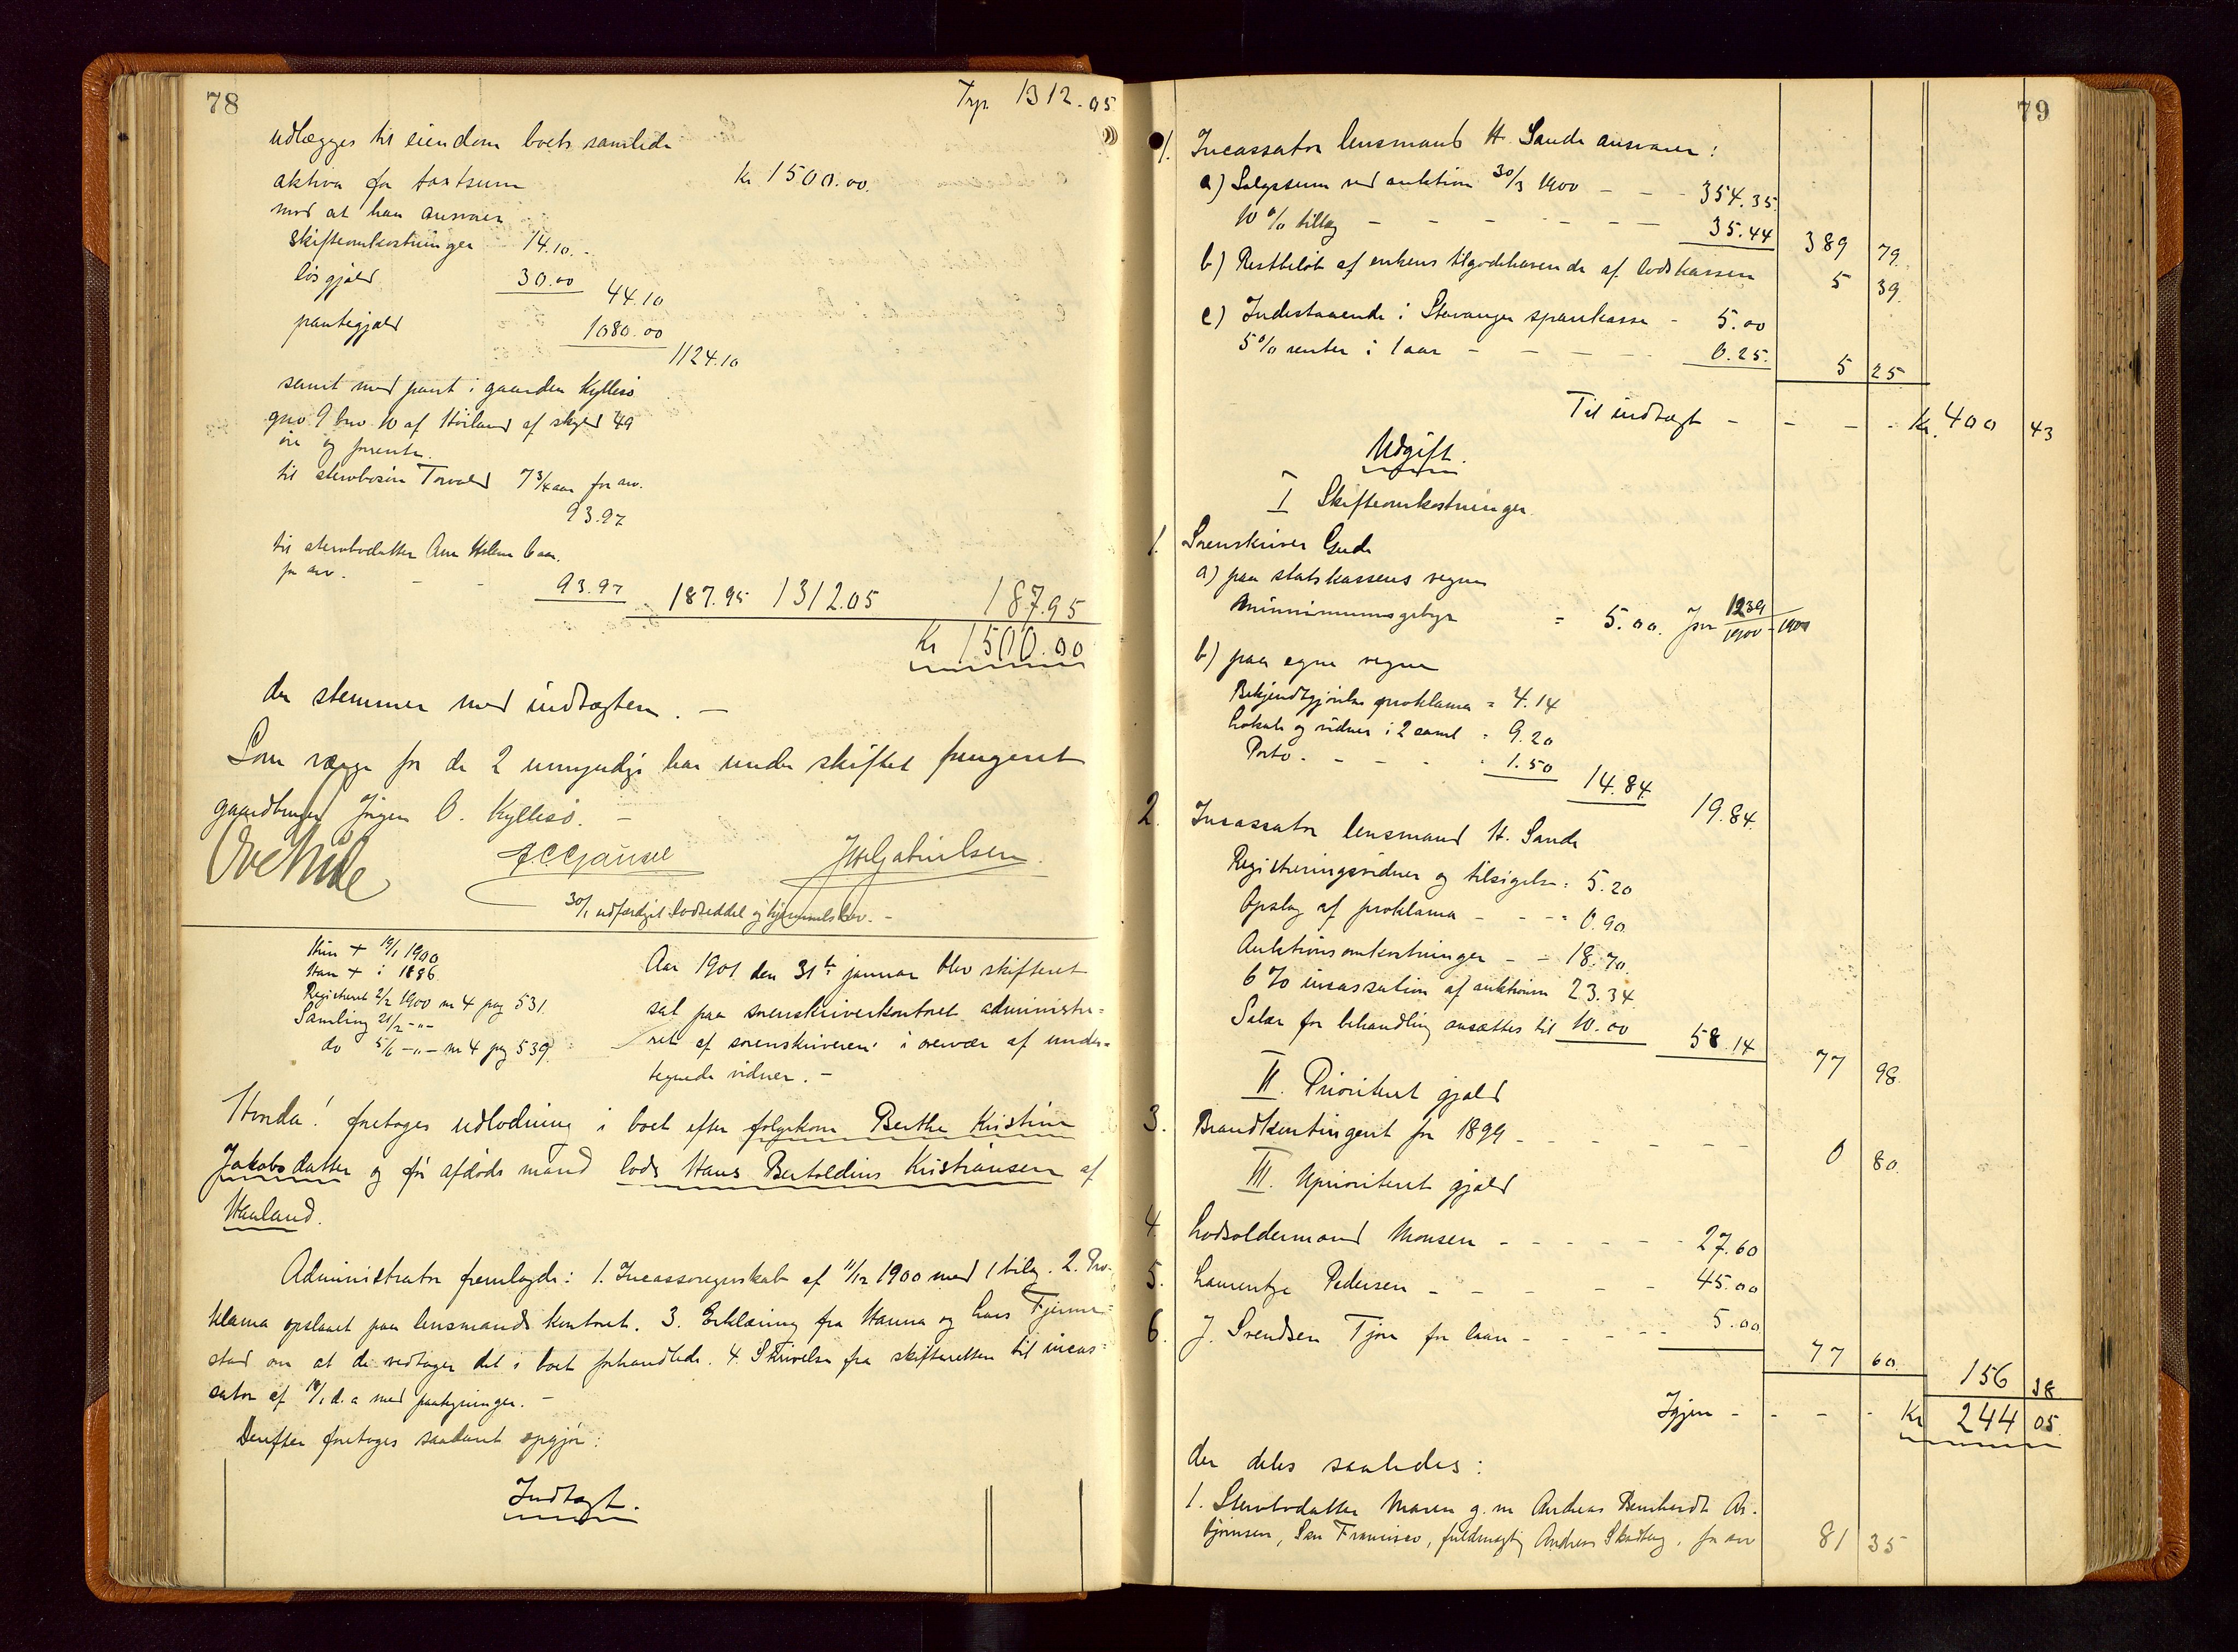 78
Trp. 1312.05
udlægges til eiendom boets samlede
aktiva for taxtsum kr 1500.00.
mod at han ansvarer
skifteomkostninger 14.10.-
løsgjæld 30.00 44.10
pantegjæld 1080.00 1124.10
samt med pant i gaarden Kyllesø
gno 9 bno 10 af Høiland af skyld 49
øre og forrente.
til sterbosøn Torvald 7 3/4 aar for arv.
93.97
til sterbodatter Ane Helene 6 aar.
for arv. - - 93.97 187.95 1312.05 187.95
Kr 1500.00
der stemmer med indtægten. -
Som værge for de 2 umyndige har under skiftet fungeret
gaardbruger Jørgen O. Kyllesø. -
30/1 udfærdiget lodseddel og hjemmelsbrev. -
Hun + 19/1 1900
Han + i 1886
Registreret 2/2 1900 nr 4 pag 531.
Samling 21/2 -"-
do 5/6 -"- nr 4 pag 539.
Aar 1901 den 31te januar blev skifteret
sat paa sorenskriverkontoret administre=
ret af sorenskriveren i overvær af under=
tegnede vidner. -
Hvorda! foretoges udlodning i boet efter folgekone Berthe Kristine
Jakobsdatter og før afdøde mand lods Hans Bertoldius Kristiansen af
Haaland.
Administrator fremlagde: 1. Incassoregnskab af 11/12 1900 med 1 bilag. 2. Pro-
klama opslaaet paa lensmandskontoret. 3. Erklæring fra Hanna og Lars Fjerme=
stad om at de vedtager det i boet forhandlede. 4. Skrivelse fra skifteretten til incas=
sator af 18/1 d.a med paategninger. -
Derefter foretoges saadant opgjør:
Indtægt.
79
1. Incassator lensmand H. Sande ansvarer:
a) Salgssum ved auktion 30/3 1900 - - - 354.35.
10 % tillæg - - - - - - 35.44 389 79.
b) Restbeløb af enkens tilgodehavende af lodskassen 5 39.
c) Indestaaende i Stavanger sparekasse - 5.00
5 % renter i 1 aar - - - - 0.25. 5 25
Til indtægt - - - - Kr. 400 43
Udgift.
I Skifteomkostninger.
1. Sorenskriver Gude
a) paa statskassens vegne
Minnimumsgebyr = 5.00. Jnr 1239/1900-1901
b) paa egne vegne
Bekjendtgjørelse proklama = 4.14
Lokale og vidner i 2 saml = 9.20
Porto. - - - - 1.50 14.84. 19.84.
2. Incassator lensmand H. Sande
Registreringsvidner og tilsigelse = 5.20
Opslag af proklama - - - = 0.90.
Auktionsomkostninger - = 18.70.
6 % incassation af auktionen 23.34.
Salær for behandling ansættes til 10.00 58.14 77 98.
II. Prioriteret gjæld
3. Brandkontingent for 1899 - - - - - - 0 80.
III. Uprioriteret gjæld
4. Lodsoldermand Monsen - - - - - 27.60
5. Laurentze Pedersen - - - - - 45.00
6. J. Svendsen Tjøn for laan - - - - 5.00 77 60. 156 38
Igjen - - - - Kr 244 05.
der deles saaledes:
1. Sterbodatter Maren g.m Andreas Bernhardt As-
bjørnsen, San Francisco, fuldmægtig Andreas Skadberg, for arv 81 35